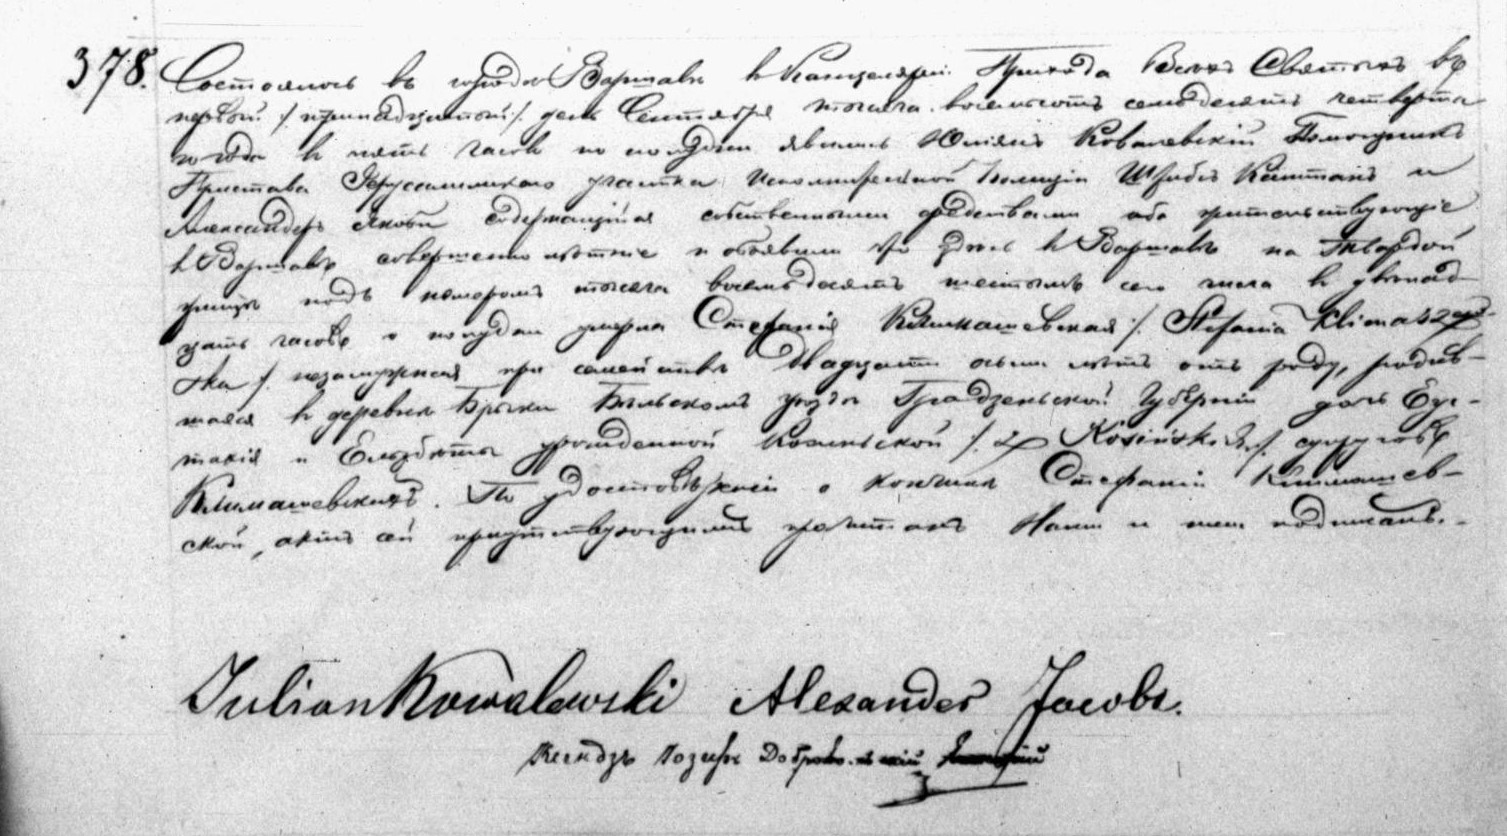 378. Состоялось въ городѣ Варшавѣ въ Канцеляріи Прихода Всѣхъ Святыхъ въ
первый /: тринадцатый :/ день Сентября тысяча восемьсотъ семьдесятъ четвертаго
года въ пять часовъ по полудни явились Юліянъ Ковалевскій Помощникъ
Пристава Ерусалимскаго участка Исполнительной Полиціи Штабсъ Капитанъ и
Александръ Якоби содержащійся собственными средствами оба жительствующіе
въ Варшавѣ совершеннолѣтніе и объявили что здѣсь въ Варшавѣ на Твардой
улицѣ подъ номеромъ тысяча восемьдесятъ шестымъ сего числа въ двѣнад-
цать часовъ о полудни умерла Стефанія Климашевская /: Stefania Klimaszew-
ska :/ незамужняя при семействѣ двадцати осьми лѣтъ отъ роду, родив-
шаяся въ деревнѣ Бѣльскомъ уѣздѣ Гродзенской Губерніи дочь Евс-
тахія и Ельзбеты урожденной Косинской /: z Kosińskich :/ супруговъ
Климашевскихъ. По удостовѣреніи о кончинѣ Стефаніи Климашев-
ской, актъ сей присутствующимъ прочитанъ Нами и ими подписанъ.
Julian Kowalewski Alexander Jacobi.
Ксендзъ Іозефъ